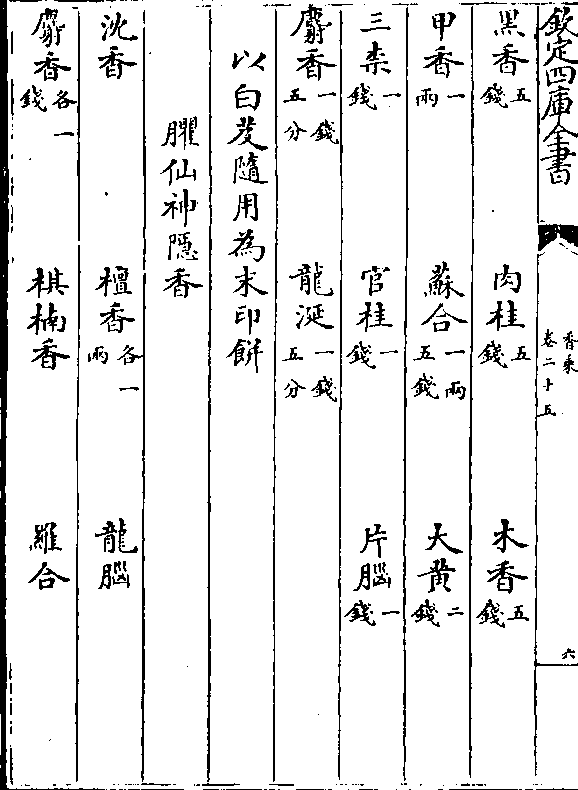 欽定四庫全書
香乘
卷二十五
六
黑香五錢 肉桂五錢 木香五錢
甲香一兩 蘇合一兩五錢 大黃二錢
三柰一錢 官桂一錢 片腦一錢
麝香一錢五分 龍涎一錢五分
以白芨隨用為末印餅
臞仙神隱香
沈香 檀香各一兩 龍腦
麝香各一錢 棋楠香 羅合